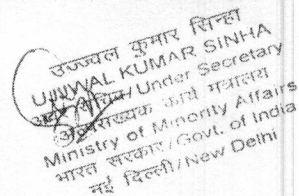 उज्ज्वल कुमार सिन्हा
UJJWAL KUMAR SINHA
सचिव/Under Secretary
अल्पसंख्यक कार्य मंत्रालय
Ministry of Minority Affairs
भारत सरकार/Govt. of India
नई दिल्ली/New Delhi